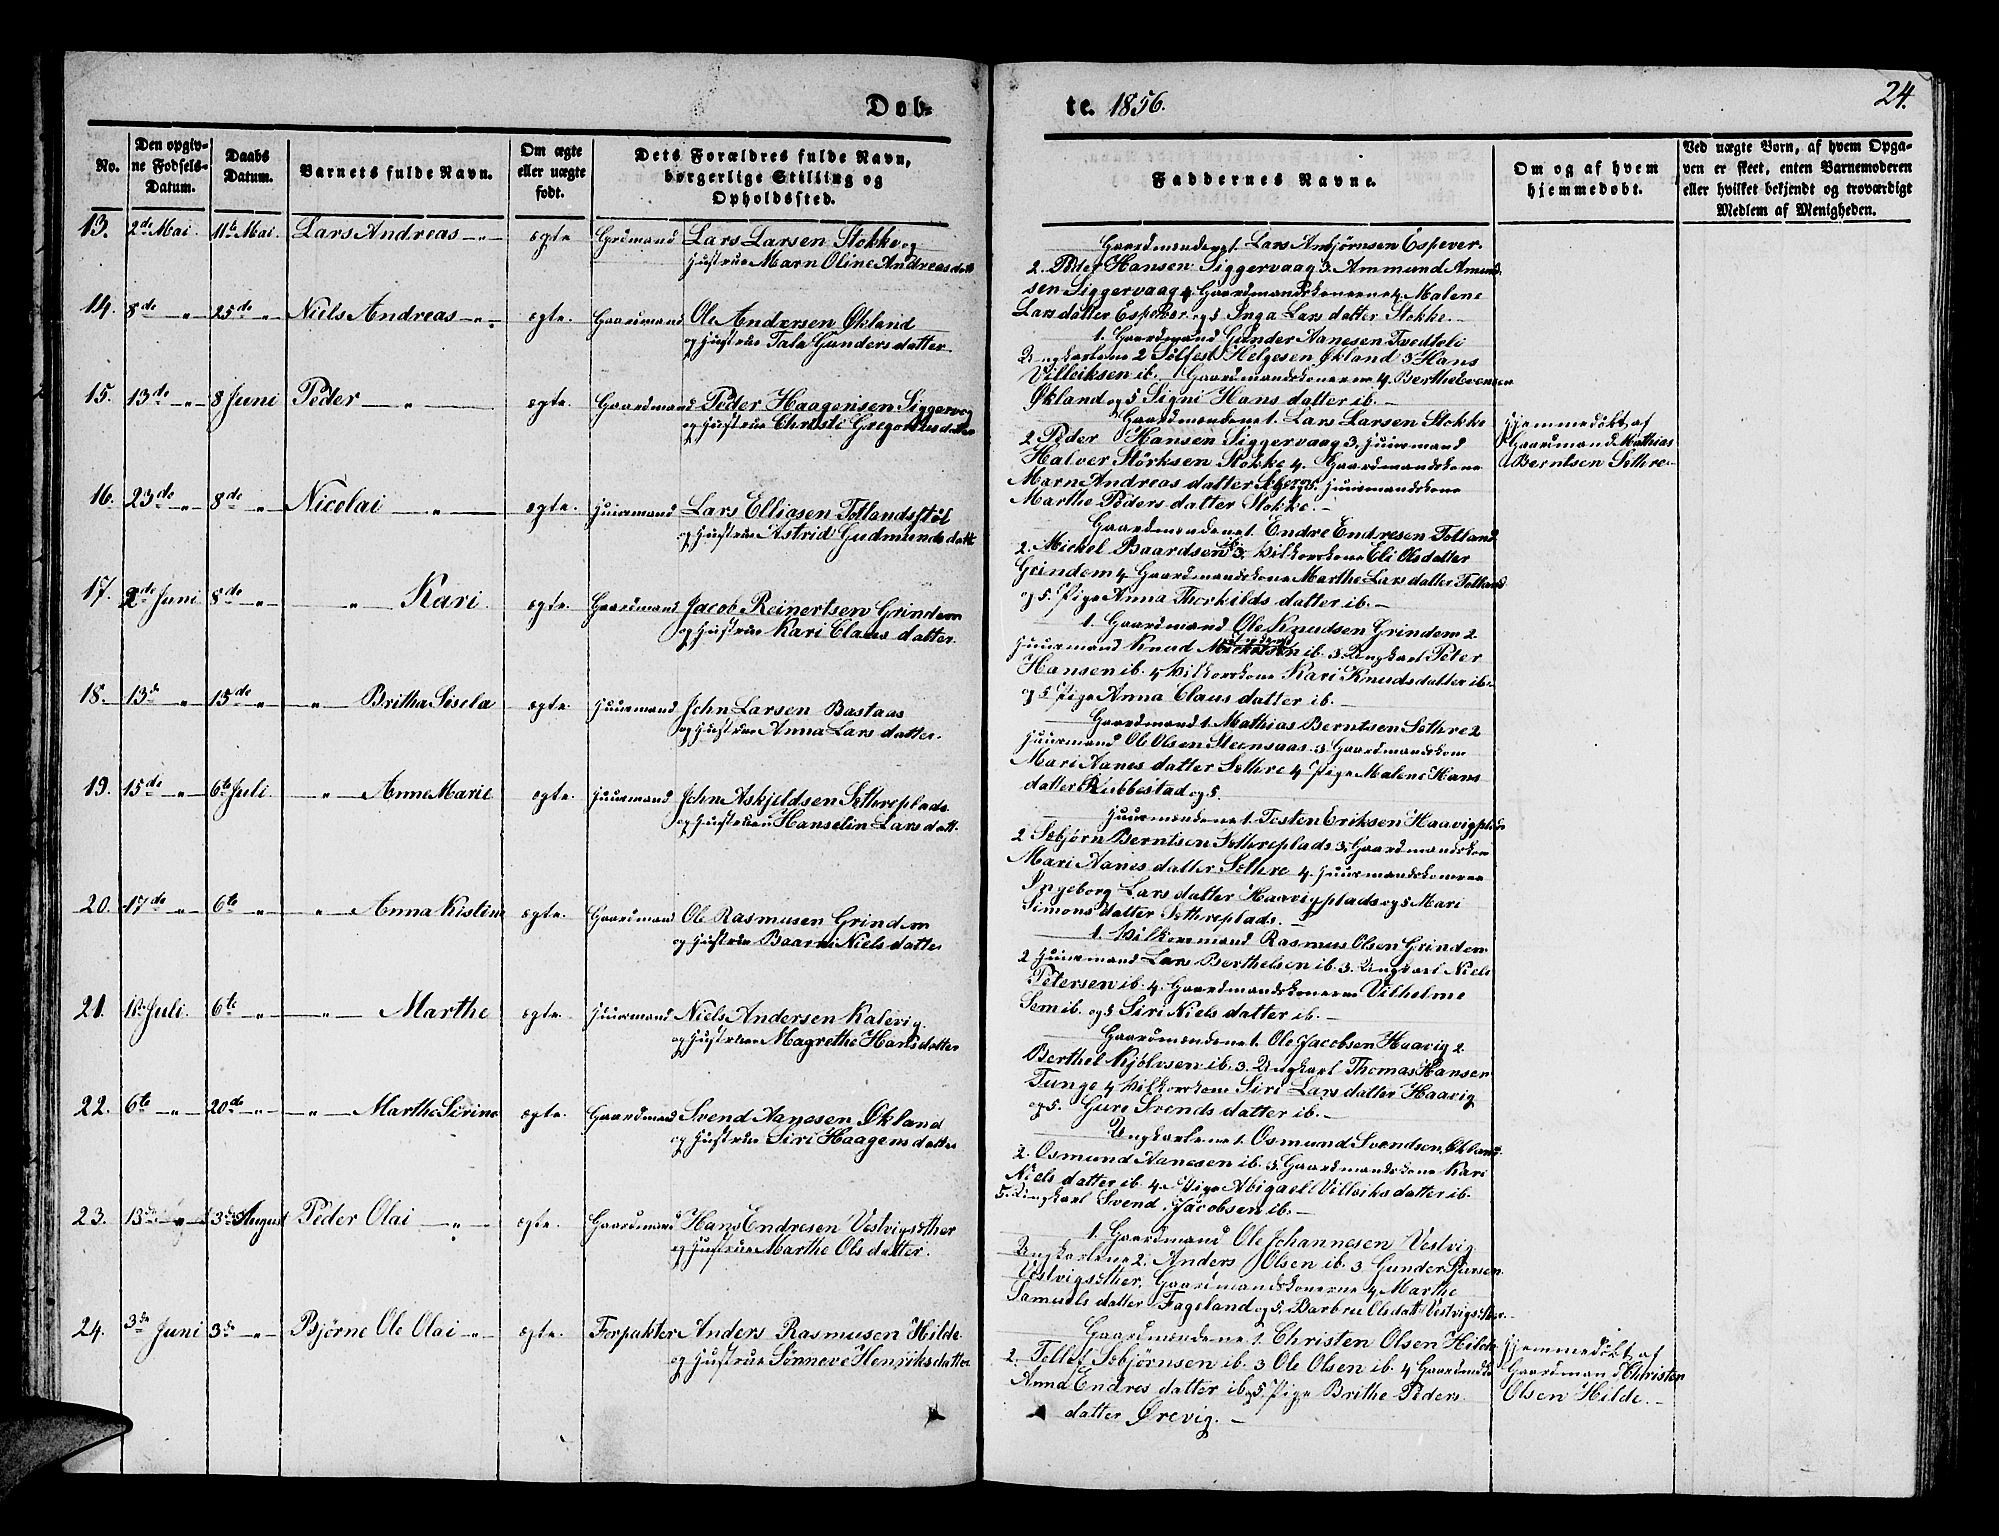 Døb-
te. 1856.
24.
No.
Den opgiv-
ne Fødsels-
Datum.
Daabs
Datum.
Barnets fulde Navn.
Om ægte
eller uægte
født.
Dets Forældres fulde Navn,
borgerlige Stilling og
Opholdssted.
Faddernes Navne.
Om og af hvem
hjemmedøbt.
Ved uægte Børn, af hvem Opga-
ven er skeet, enten Barnemoderen
eller hvilket bekjendt og troværdigt
Medlem af Menigheden.
13. 2de Mai 11te Mai. Lars Andreas — " — ægte Grdmand Lars Larsen Stokke og
Hustrue Marn Oline Andreasdatt
Gaardmændene 1. Lars Anbjørnsen Espever.
2. Peder Hansen Siggervaag 3. Ammund Amund
sen Siggervaag 4 Gaardmandskonerne 4. Malene
Larsdatter Espever og 5 Inga Larsdatter Stokke.—
14. 8de " 25de " Niels Andreas — " — ægte. Gaardmand Ole Andersen Økland
og Hustrue Tala Gundersdatter
1. Gaardmand Gunder Aanesen Tvedteli
Ungkarlene 2 Sølfest Helgesen Økland 3 Hans
Villeiksen ib. Gaardmandskonerne 4. Berthe Evensen
Økland og 5 Signi Hansdatter ib.—
15. 13de — " 8 Juni Peder — " — ægte. Gaardmand Peder Haagensen Siggervog
og Hustrue Christi Gregoriusdatter
Gaardmændene 1. Lars Larsen Stokke
2. Peder Hansen Siggervaag 3, Huusmand
Halver Størksen Stokke 4. Gaardmandskone
Marn Andreasdatter 5. Huusmandskone
Marthe Pedersdatter Stokke.—
Hjemmedøbt af
Gaardmand Mathias
Berntsen Sethre—
16. 23de " 8de " Nicolai — " — ægte. Huusmand Lars Elliasen Totlandsstøl
og Hustrue Astrid Gudmundsdatt
Gaardmændene 1. Endre Endresen Totland
2. Mickel Baardsen ib 3. Vilkorskone Eli Olsdatter
Grindem 4 Gaardmandskone Marthe Larsdatter Totland
og 5. Pige Anna Thorkildsdatter ib.—
17. 2de Juni 8de " — " — Kari ægte Gaardmand Jacob Reinertsen Grindem
og Hustrue Kari Clausdatter
1. Gaardmand Ole Knudsen Grindem 2
Huusmand Knud Mickelsen ib. 3. Ungkarl Peter
Hansen ib. 4 Vilkorskone Kari Knudsdatter ib.
og 5 Pige Anna Clausdatter ib.—
18. 13de " 15de " " Britha Sisela ægte. Huusmand John Larsen Bastaas
og Hustrue Anna Larsdatter.
Gaardmand 1. Mathias Berntsen Sethre 2
Huusmand Ole Olsen Steensaas. 3 Gaardmandskone
Mari Aanesdatter Sethre 4 Pige Malene Hans
datter Rubbestad og 5.
19. 15de — " 6te Juli. " Anne Marie ægte. Huusmand John Askjeldsen Sethreplads
og Hustruen Hanselin Larsdatt.
Huusmændene 1. Tosten Eriksen Haavigplds
2 Sebjørn Berntsen Sethreplads 3; Gaardmandskon
Mari Aanesdatter Sethre 4. Huusmandskonerne
Ingeborg Larsdatter Haavigplads og 5 Mari
Simonsdatter Sethreplads.—
20. 17de " 6te " " Anna Kistine ægte. Gaardmand Ole Rasmusen Grindem
og Hustrue Baarni Nielsdatter
1. Vilkormand Rasmus Olsen Grindem
2 Huusmand Lars Berthelsen ib. 3. Ungkarl Niels
Petersen ib. 4. Gaardmandskonerne Vilhelme
Sem ib. og 5 Siri Nielsdatter ib.—
21. 1ste Juli. 6te " — " — Marthe ægte Huusmand Niels Andersen Kalevig.
og Hustruen Magrethe Hansdatter
Gaardmændene 1. Ole Jacobsen Haavig 2.
Berthel Kjølvsen ib. 3. Ungkarl Thomas Hansen
Tunge 4 Vilkorskone Siri Larsdatter Haavig
og 5. Guro Svendsdatter ib.—
22. 6te " 20de " " Marthe Serine ægte. Gaardmand Svend Aanesen Økland
og Hustrue Siri Haagensdatter
Ungkarlene 1. Osmund Svendsen Økland
2. Osmund Aanesen ib. 3 Gaardmandskone Kari
Nielsdatter ib. 4. Pige Abigael Villeiksdatter ib.
5. Ungkarl Svend Jacobsen ib.—
23. 13de " 3de August Peder Olai — " — ægte. Gaardmand Hans Endresen Vestvigsether
og Hustrue Marthe Olsdatter.
1. Gaardmand Ole Johannesen Vestvig
Ungkarlene 2. Anders Olsen ib. 3 Gunder Iversen
Vestvigsether, Gaardmandskonerne 4 Marthe
Samuelsdatter Fageland og 5. Barbru Olsdatt Vestvigsether
24. 3de Juni 3de " Bjørne Ole Olai — " — ægte. Forpakter Anders Rasmusen Hilde
og Hustrue Sønneve Henriksdatter
Gaardmændene 1. Christen Olsen Hilde
2. Tellef Sebjørnsen ib. 3 Ole Olsen ib. 4 Gaardmdsk
Anna Endresdatter ib og 5. Pige Brithe Peders
datter Ørevig.—
Hjemmedøbt af
Gaardmand Christen
Olsen Hilde.—